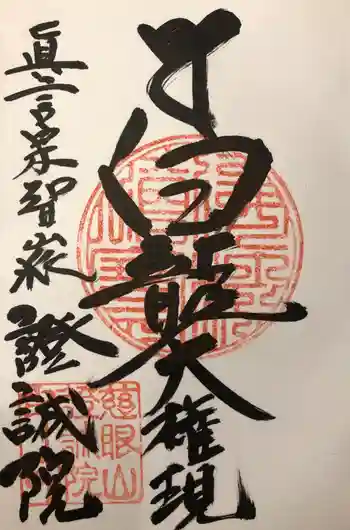 白龍大権現
眞言宗智山派
證誠院
慈眼山
證誠院